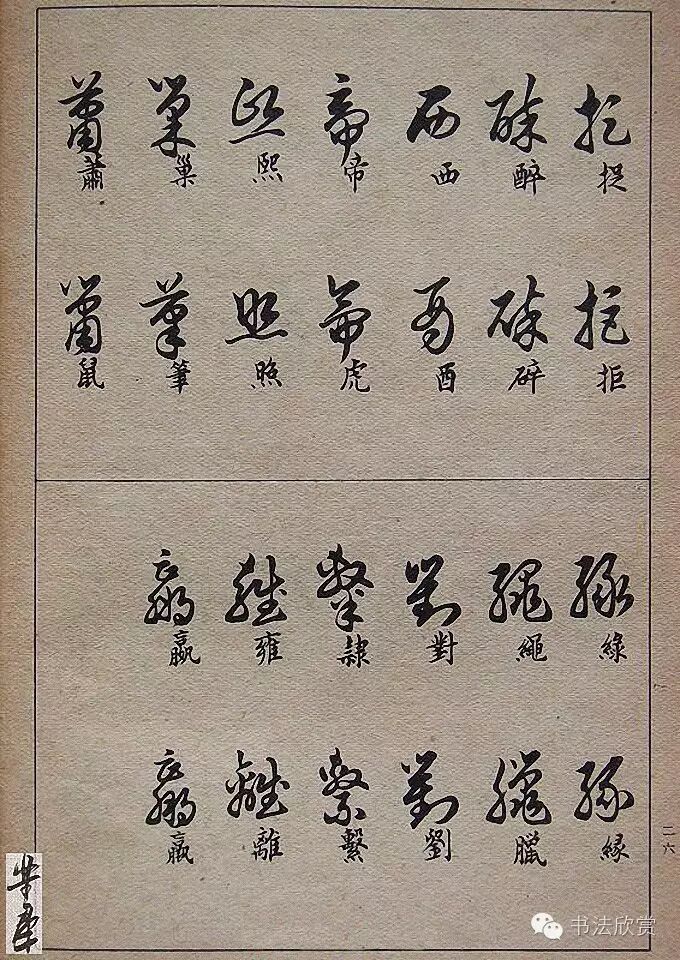 捉 醉 西 帝 熙 巢 蕭
拒 碎 酉 虎 照 筆 鼠
綠 繩 對 隸 雍
緣 臘 劉 繫 離
二六
书法欣赏